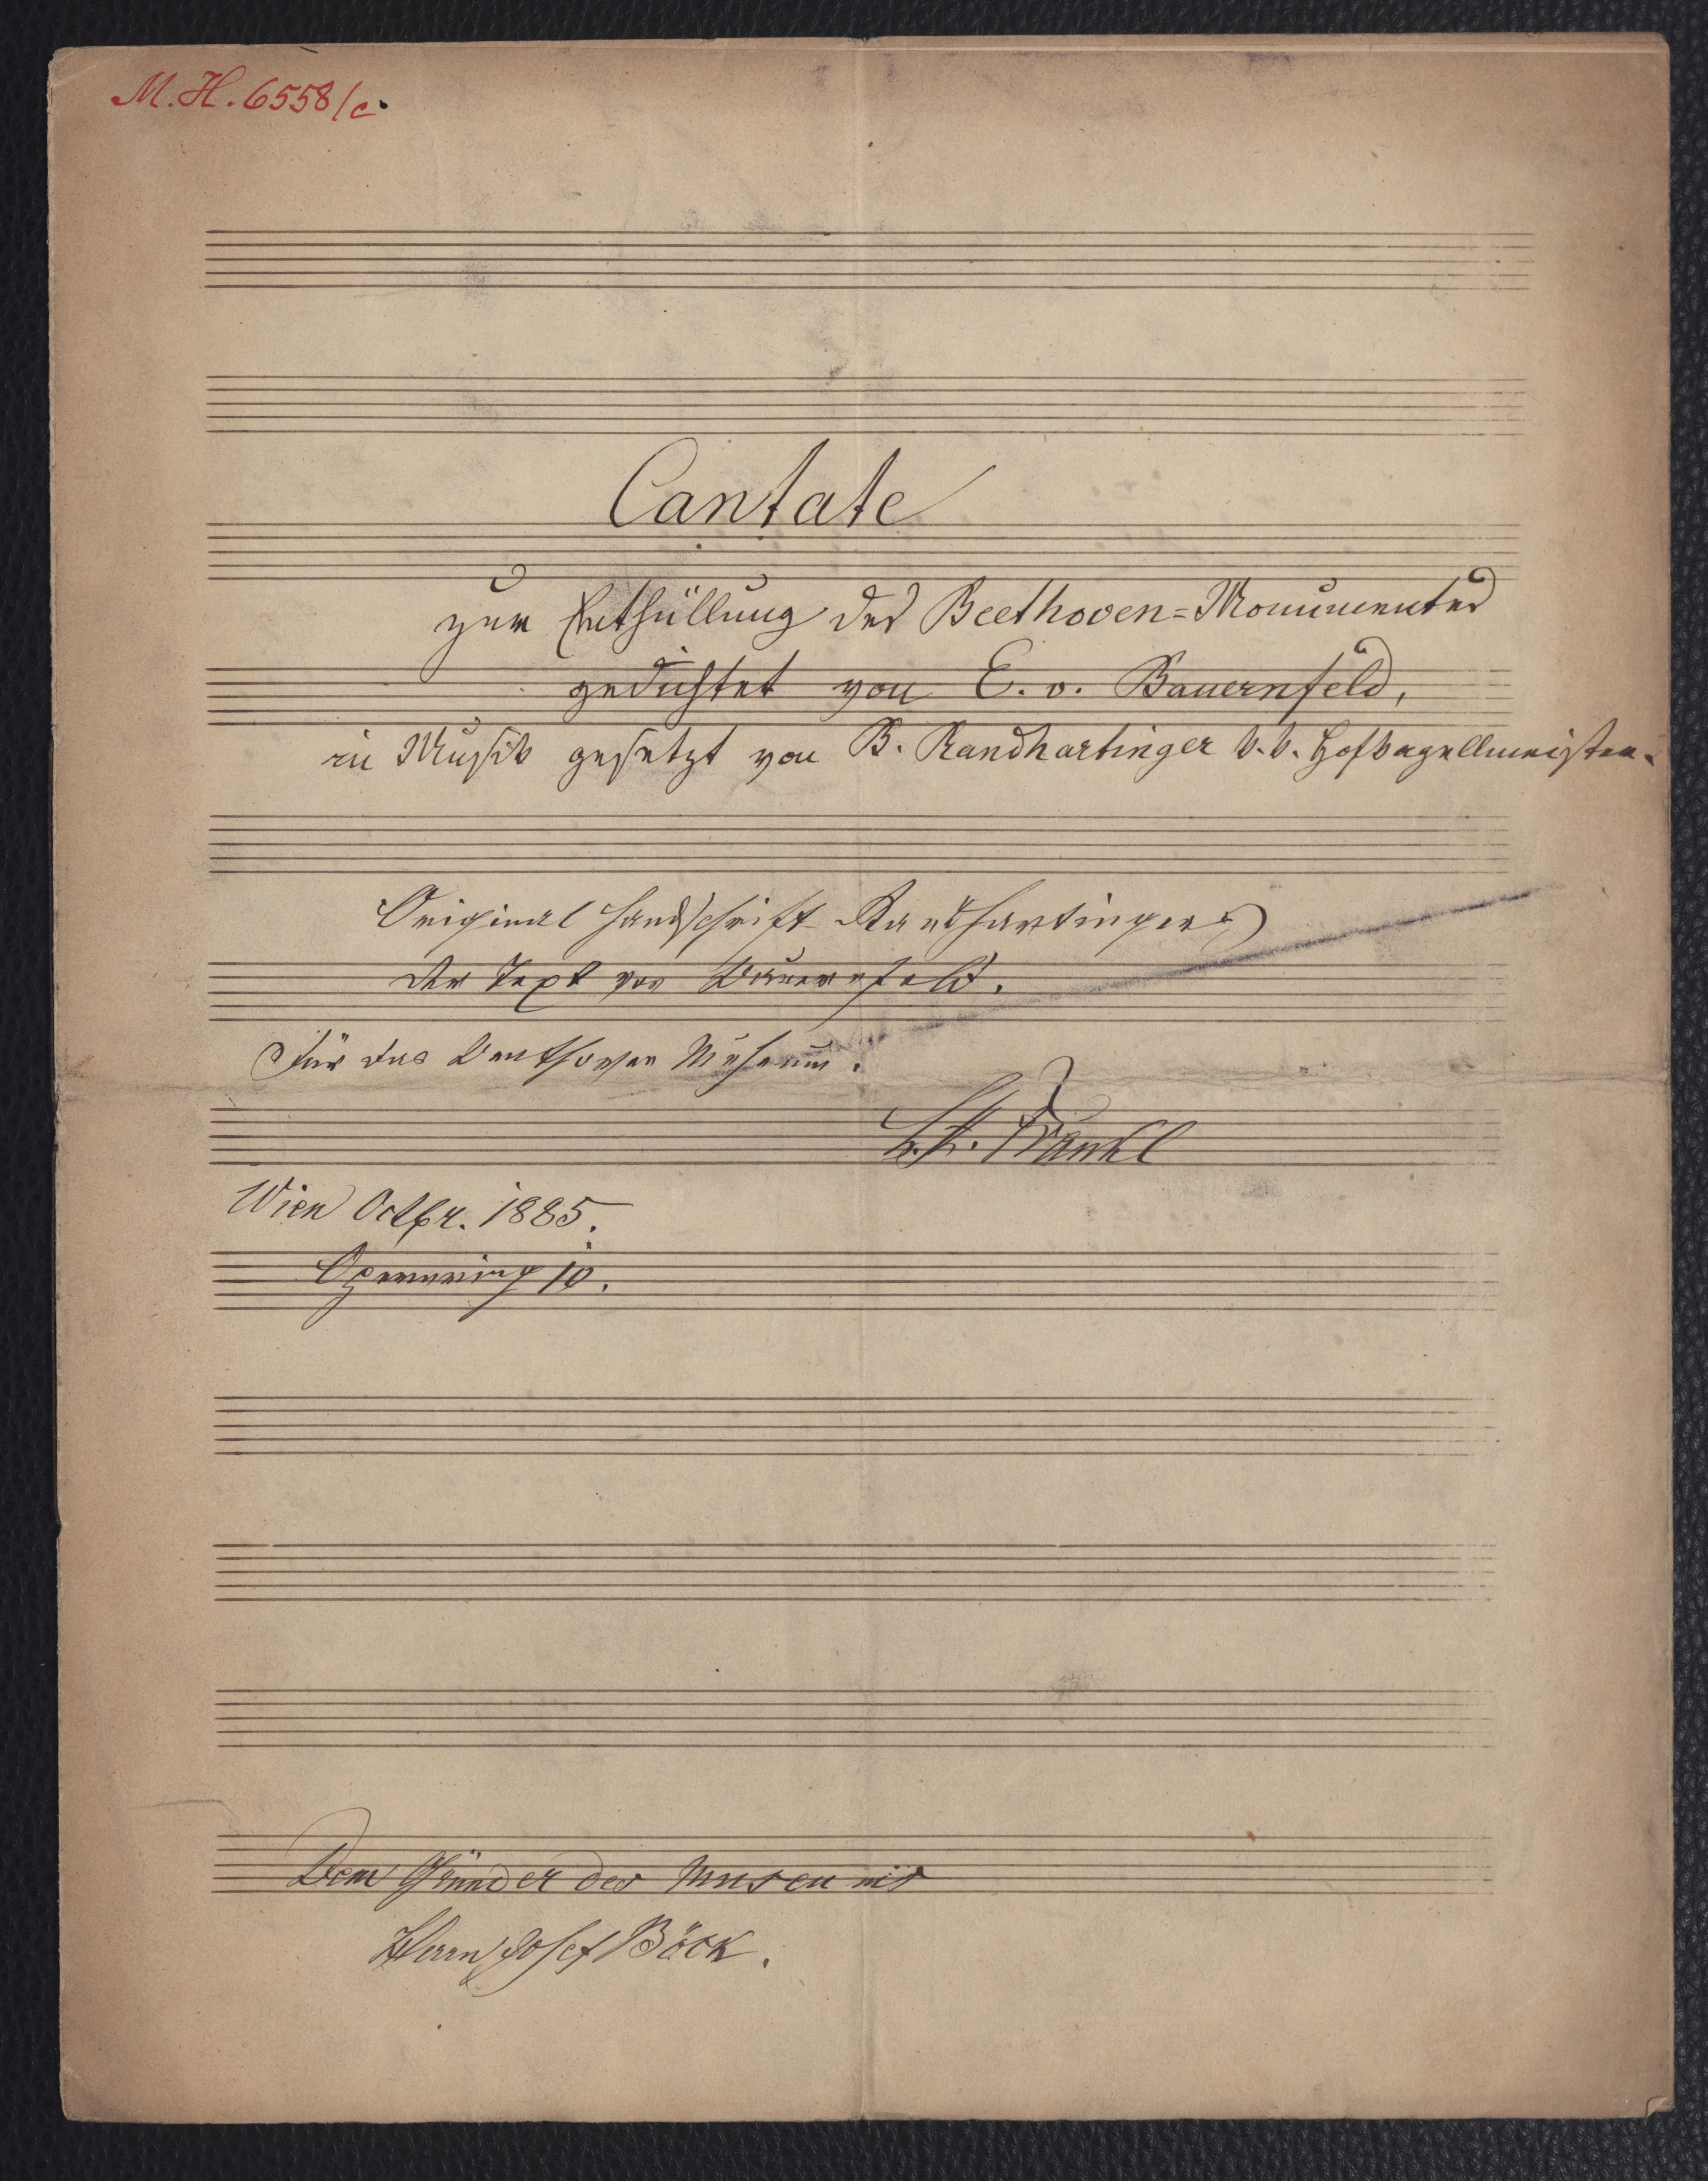 M. H. 6558/c.
Cantate
zur Enthüllung des Beethoven=Monumentes
gedichtet von E. v. Bauernfeld,
in Musik gesetzt von B. Randhartinger k. k. Hofkapellmeister.
Original Handschrift Randhartingers
der Text von Bauernfeld.
Für das Beethoven Museum.
L. A. Frankl
Wien Octbr. 1885.
Opernring 10.
Dem Gründer des Museums
Herrn Josef Böck.